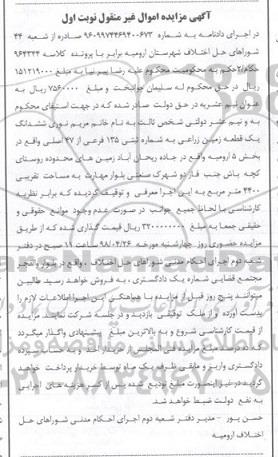 آگهی مزایده اموال غیر منقول نوبت اول
در اجرای دادنامه به شماره ۹۶۰۹۹۷۴۴۶۹۴۰۰۶۷۳ صادره از شعبه ۴۴
شوراهای حل اختلاف شهرستان ارومیه برابر با پرونده کلاسه ۹۶۴۳۴۴
حکم به محکومیت محکوم علیه رضا بیم نیا به مبلغ ۱۵۱۲۱۹۰۰۰
ریال در حق محکوم له سلیمان جوانبخت و مبلغ ۷۵۶۰۰۰۰ ریال به
عنوان نیم عشریه در حق دولت صادر شده که در جهت استیفای محکوم
به و نیم عشر دولتی شخص ثالث به نام خانم مریم نوری ششدانگ
یک قطعه زمین زراعی به شماره ثبتی ۱۳۵ فرعی از ۴۷ اصلی واقع در
بخش ۵ ارومیه واقع در جاده ریحان آباد زمین های محدوده روستای
کچه باش جنب فاز دو شهرک صنعتی بلوار مهارت به مساحت تقریبی
۴۴۰۰ متر مربع به این اجرا معرفی و توقیف گردیده که برابر نظریه
کارشناسی با لحاظ جمیع جوانب در صورت عدم وجود موانع حقوقی و
حقیقی جمعا به مبلغ ۳۲۰۰۰۰۰۰۰۰ ریال قیمت گذاری شده که از طریق
مزایده حضوری روز چهارشنبه مورخه ۹۸/۰۴/۲۶ ساعت ۱۱ صبح در دفتر
شعبه دوم اجرای احکام مدنی شوراهای حل اختلاف واقع در
مجتمع قضایی شماره یک دادگستری ، به فروش خواهد رسید طالبین
میتوانند پنج روز قبل از مزایده با هماهنگی این اجرا اطلاعات لازم را
بدست آورده و از ملک توقیفی بازدید و در جلسه شرکت نمایند مزایده
از قیمت کارشناسی شروع و به بالاترین مبلغ پیشنهادی واگذار میگردد
ده درصد مبلغ مزایده فی المجلس از خریدار اخذ و به حساب سپرده
دادگستری واریز و مابقی ظرف یک ماه توسط خریدار پرداخت خواهد
گردید در غیر اینصورت مبلغ تودیع شده پس از کسر هزینه های اجرایی
به نفع دولت ضبط خواهد شد.
حسن پور - مدیر دفتر شعبه دوم اجرای احکام مدنی شوراهای حل
اختلاف ارومیه